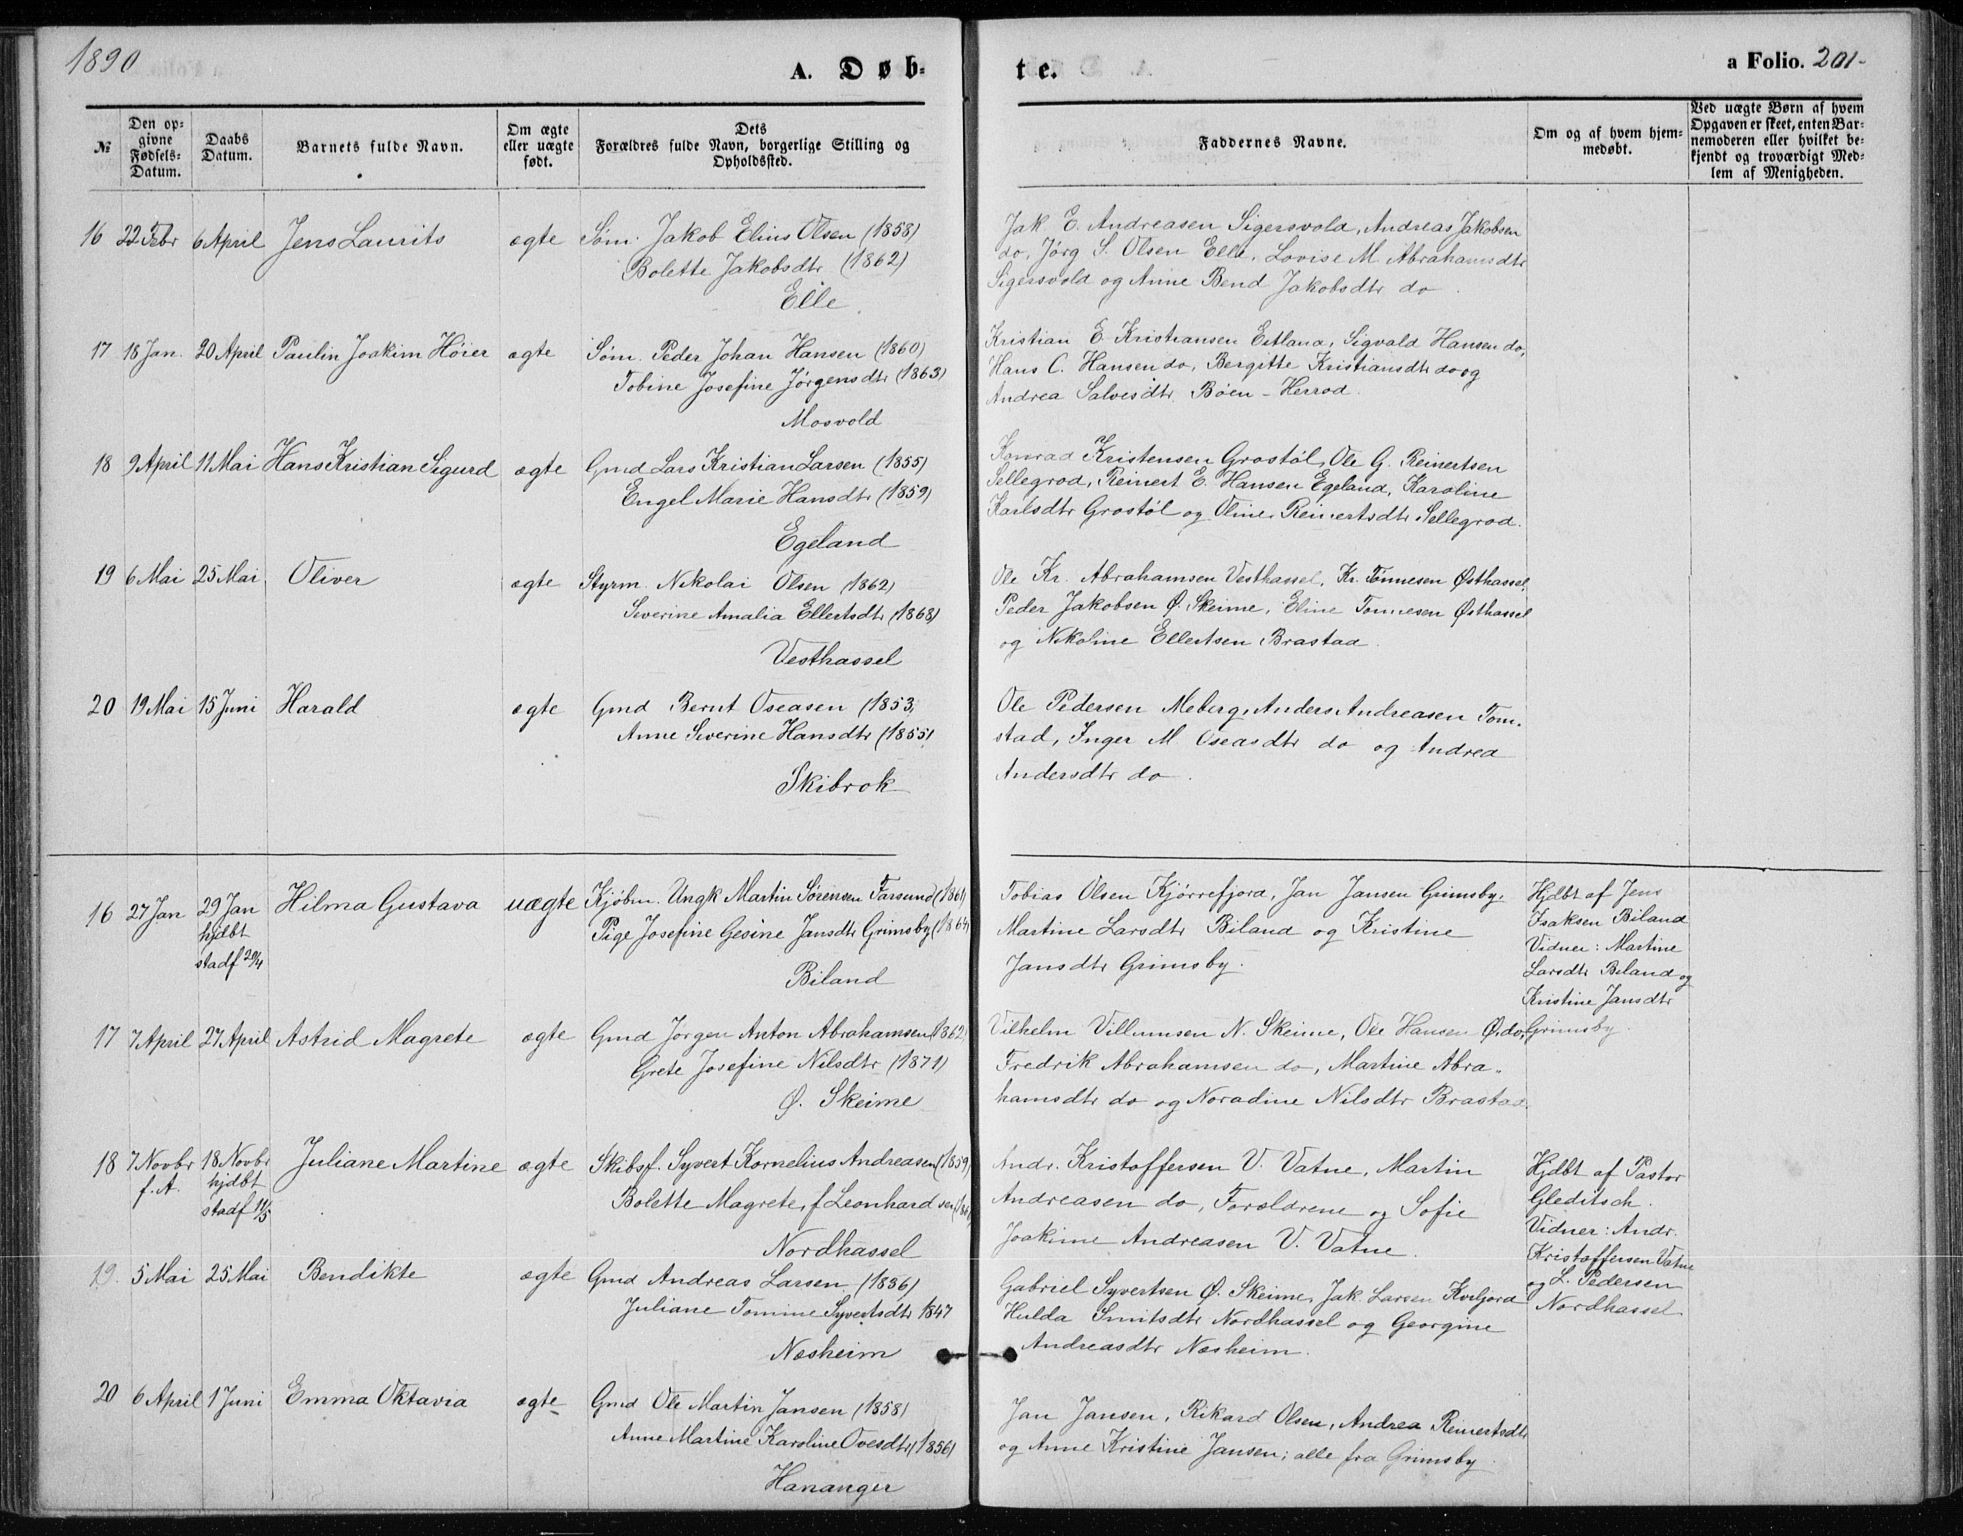 1890
A. Døb-
te.
a Folio. 201-
№
Den op-
givne
Fødsels-
Datum.
Daabs
Datum.
Barnets fulde Navn.
Om ægte
eller uægte
født.
Dets
Forældres fulde Navn, borgerlige Stilling og
Opholdssted.
Faddernes Navne.
Om og af hvem hjem-
medøbt.
Ved uægte Børn af hvem
Opgaven er skeet, enten Bar-
nemoderen eller hvilket be-
kjendt og troværdigt Med-
lem af Menigheden.
16 22 Febr 6 April Jens Laurits ægte Søm. Jakob Elius Olsen (1858)
Bolette Jakobsdtr (1862)
Elle
Jak E. Andreasen Sigersvold, Andreas Jakobsen
do, Jørg S. Olsen Elle, Lovise M. Abrahamsdtr
Sigersvold og Anne Bend Jakobsdtr do.
17 18 Jan. 20 April Paulin Joakim Höier ægte Søm. Peder Johan Hansen (1860)
Tobine Josefine Jørgensdtr (1863)
Mosvold
Kristian E. Kristiansen Eitland, Sigvald Hansen do,
Hans C. Hansen do, Bergitte Kristiansdtr do og
Andrea Salvesdtr Böen - Herrod.
18 9 April 11 Mai Hans Kristian Sigurd ægte Gmd Lars Kristian Larsen (1855)
Engel Marie Hansdtr (1859)
Egeland
Konrad Kristensen Grostöl, Ole G. Reinertsen
Sellegrod, Reinert E. Hansen Egeland, Karoline
Karlsdtr Grostöl og Oline Reinertsdtr Sellegrod.
19 6 Mai 25 Mai Oliver ægte Styrm. Nikolai Olsen (1862)
Severine Amalia Ellertsdtr (1868)
Vesthassel
Ole Kr. Abrahamsen Vesthassel, Kr. Tönnesen Østhassel,
Peder Jakobsen Ø. Skeime, Eline Tonnesen Østhassel
og Nikoline Ellertsen Brastad.
20 19 Mai 15 Juni Harald ægte Gmd Bernt Oseasen (1853)
Anne Severine Hansdtr (1855)
Skibrok
Ole Pedersen Meberg, Anders Andreasen Tom-
stad, Inger M Oseasdtr do og Andrea
Andersdtr do.
16 27 Jan 29 Jan Hilma Gustava uægte Kjöbm. Ungk Martin Sörensen Farsund (1861)
hjdbt
stadf 20/4
Pige Josefine Gesine Jansdtr Grimsby (1864)
Biland
Tobias Olsen Kjörrefjord, Jan Jansen Grimsby.
Martine Larsdtr Biland og Kristine
Jansdtr Grimsby.
Hjdbt af Jens
Isaksen Biland
Vidner: Martine
Larsdtr Biland og
Kristine Jansdtr
Grimsby
17 7 April 27 April Astrid Magrete ægte Gmd Jörgen Anton Abrahamsen (1862)
Grete Josefine Nilsdtr (1871)
Ø. Skeime
Vilhelm Villumsen N. Skeime, Ole Hansen Ø. do,
Fredrik Abrahamsen do, Martine Abra-
hamsdtr do og Noradine Nilsdtr Brastad.
18 7 Novbr 18 Novbr Juliane Martine ægte Skibsf. Syvert Kornelius Andreasen (1859)
f. A. hjdbt
stadf 11/5
Bolette Magrete, f Leonhardsen
Nordhassel
Andr. Kristoffersen V. Vatne, Martin
Andreasen do, Forældrene og Sofie
Joakime Andreasen V. Vatne.
Hjdbt af Pastor
Gleditsch.
Vidner: Andr.
Kristoffersen Vatne
og L. Pedersen
Nordhassel
19. 5 Mai 25 Mai Bendikte ægte Gmd Andreas Larsen (1836)
Juliane Tomine Syvertsdtr 1847
Næsheim
Gabriel Syvertsen Ø. Skeime, Jak. Larsen Kviljord
Hulda Smitsdtr Nordhassel og Georgine
Andreasdtr Næsheim.
20 6 April 1 Juni Emma Oktavia ægte Gmd Ole Martin Jansen (1858)
Anne Martine Karoline Ovesdtr (1856)
Hananger
Jan Jansen, Rikard Olsen, Andrea Reinertsdtr
og Anne Kristine Jansen; alle fra Grimsby.